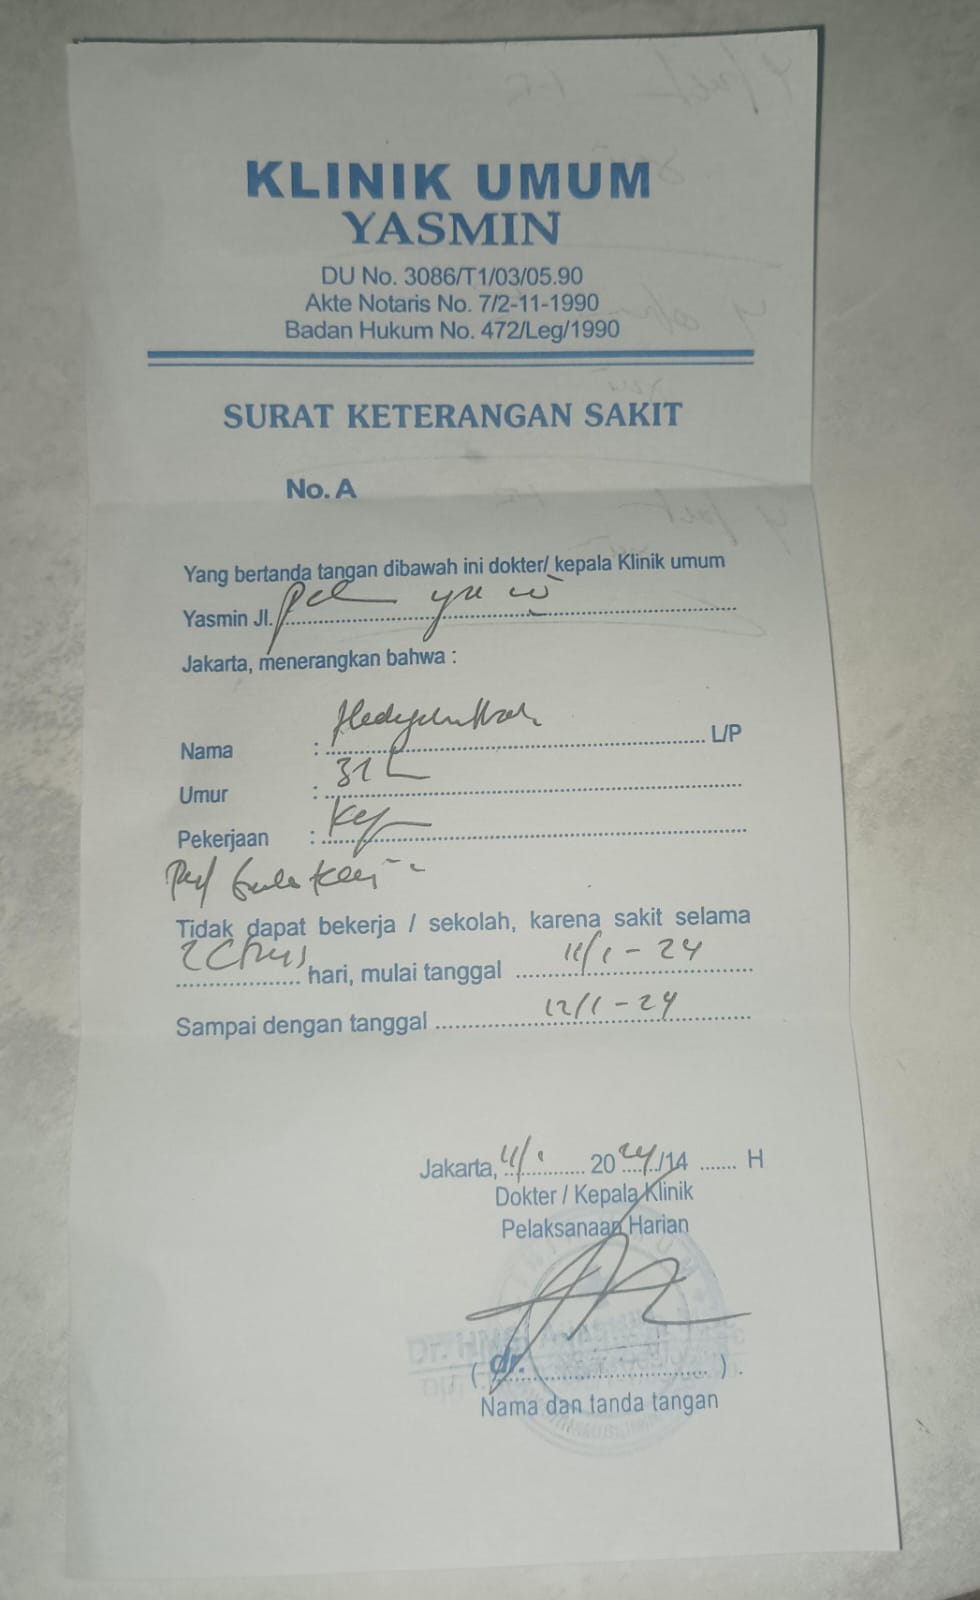 KLINIK UMUM
YASMIN
DU No. 3086/T1/03/05.90
Akte Notaris No. 7/2-11-1990
Badan Hukum No. 472/Leg/1990
SURAT KETERANGAN SAKIT
No. A
Yang bertanda tangan dibawah ini dokter/ kepala Klinik umum
Yasmin Jl.
Jakarta, menerangkan bahwa :
Nama : L/P
Umur : 31
Pekerjaan :
Tidak dapat bekerja / sekolah, karena sakit selama
hari, mulai tanggal 11/1-24
Sampai dengan tanggal 12/1-24
Jakarta, 11/1 2024/14 H
Dokter / Kepala Klinik
Pelaksanaan Harian
( dr. ) .
Nama dan tanda tangan